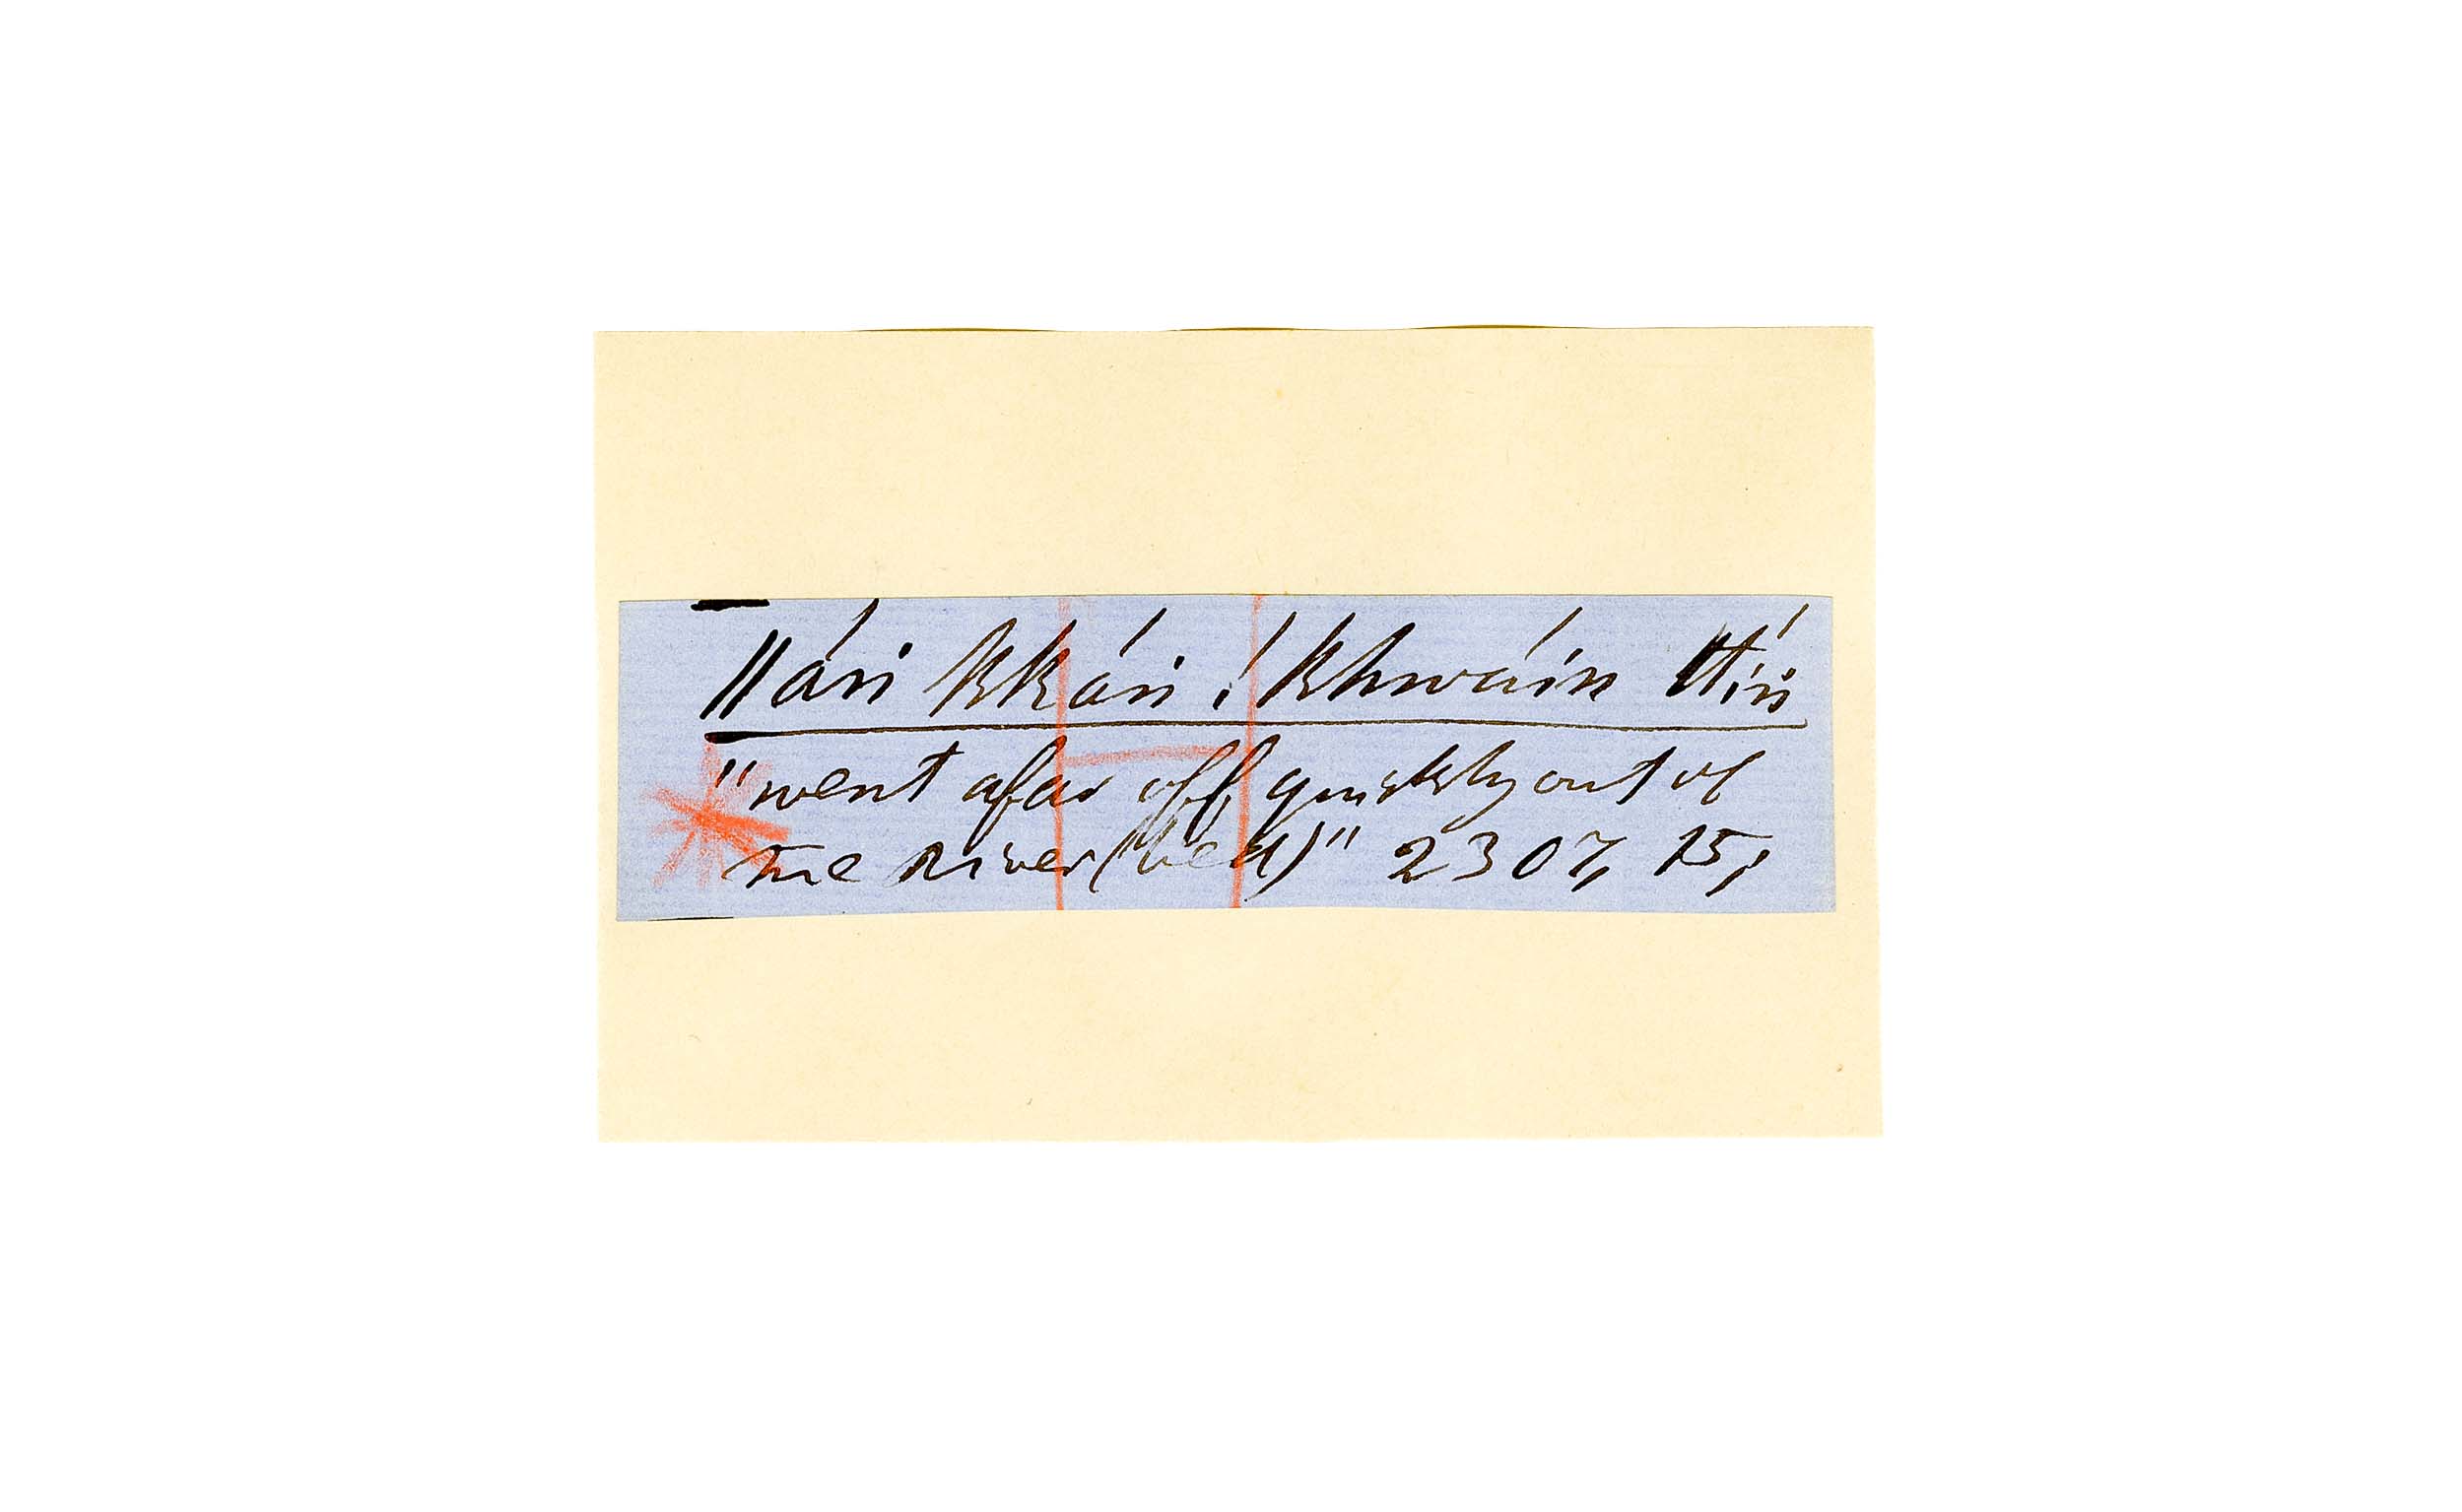 ǁári kkári ! khwáin ttíń
"went afar off, quickly out of
the River (bed)" 2307, 15,